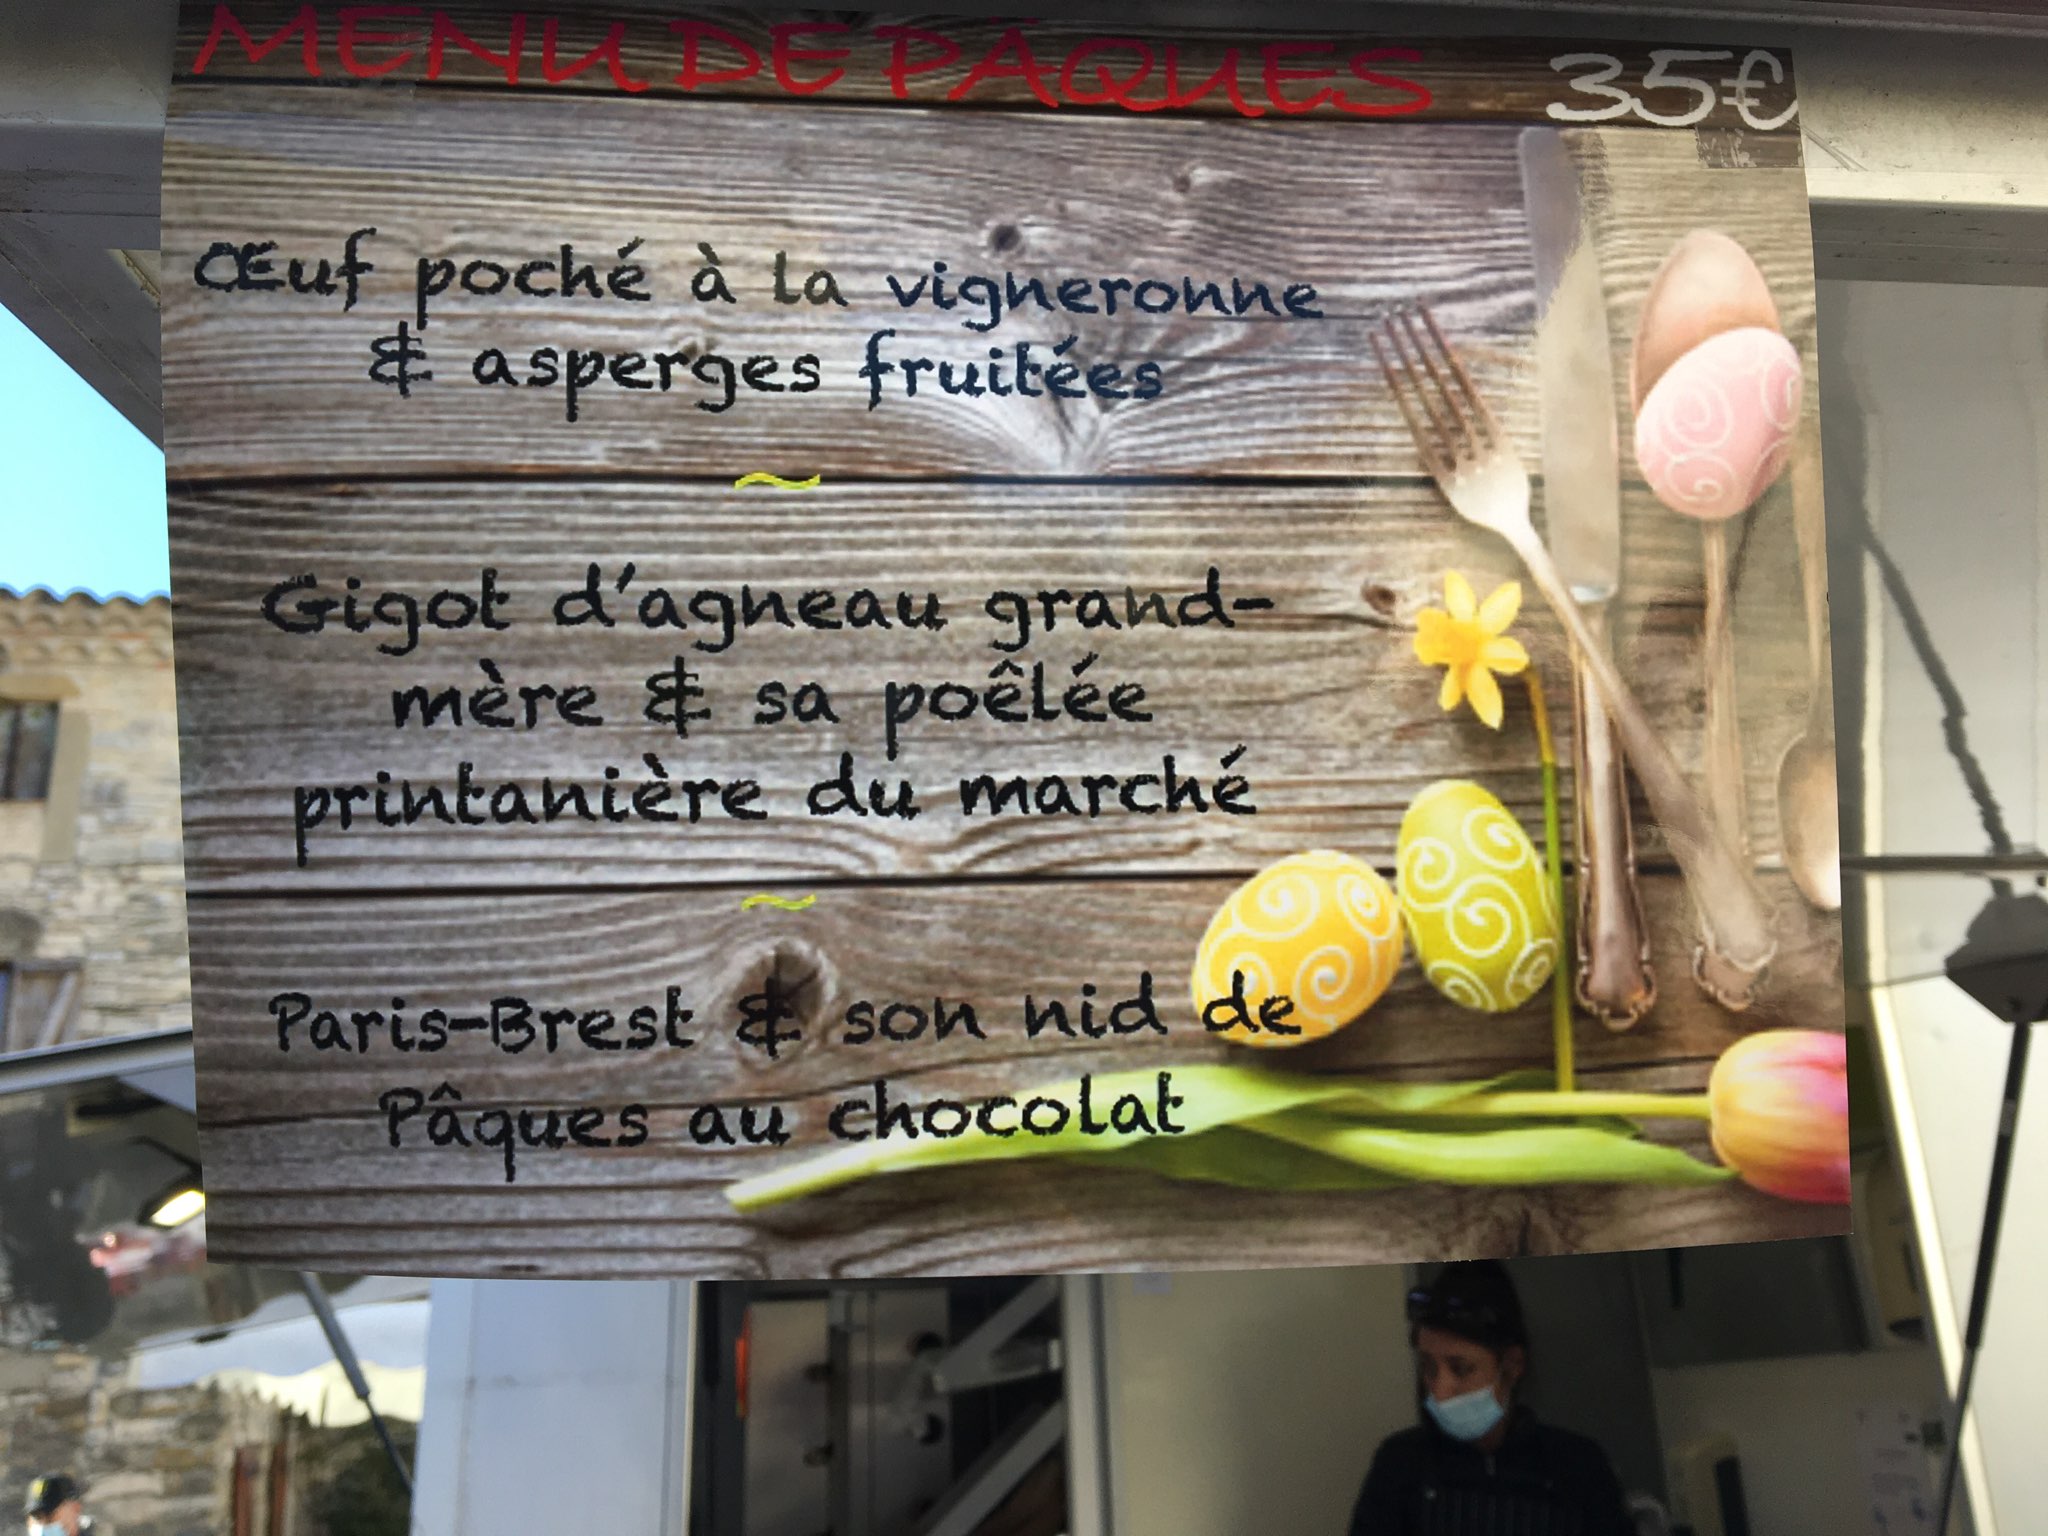 MENU DE PÂQUES 35€
Œuf poché à la vigneronne
& asperges fruitées
~
Gigot d'agneau grand-
mère & sa poêlée
printanière du marché
~
Paris-Brest & son nid de
Pâques au chocolat